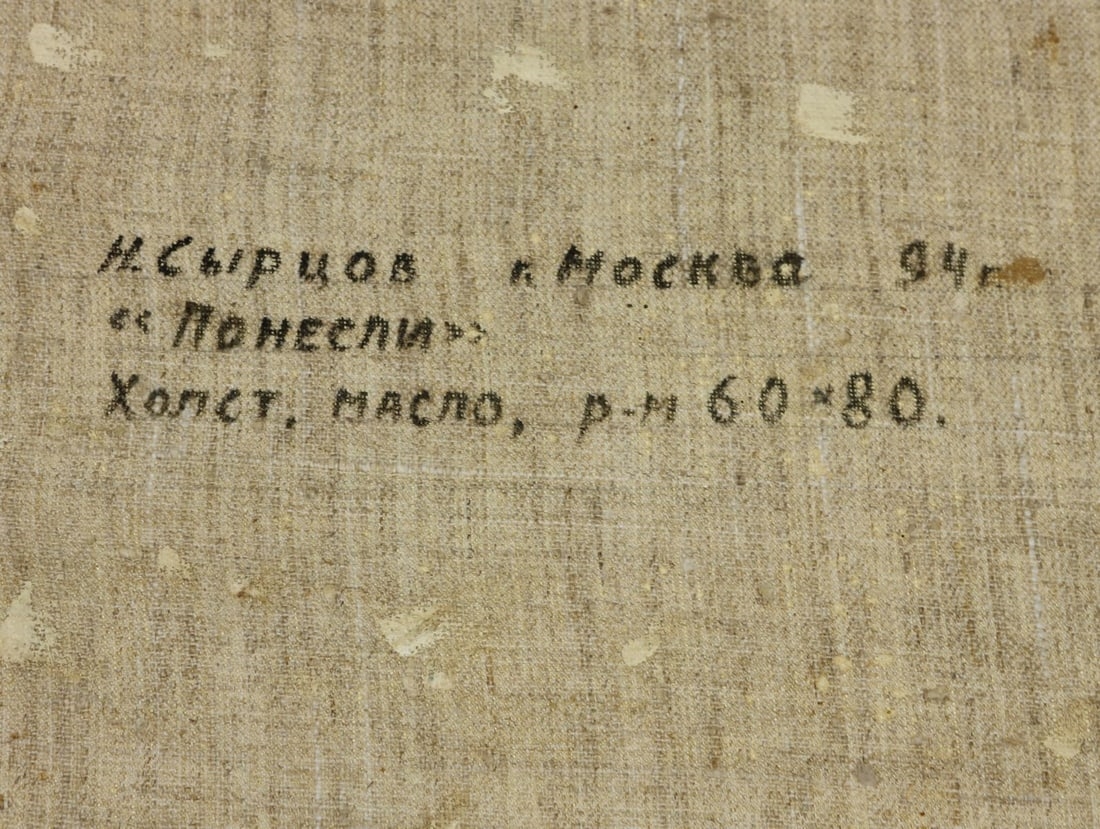 Н.Сырцов г. Москва 94г.
«Понесли»
Холст, масло, р-м 60×80.